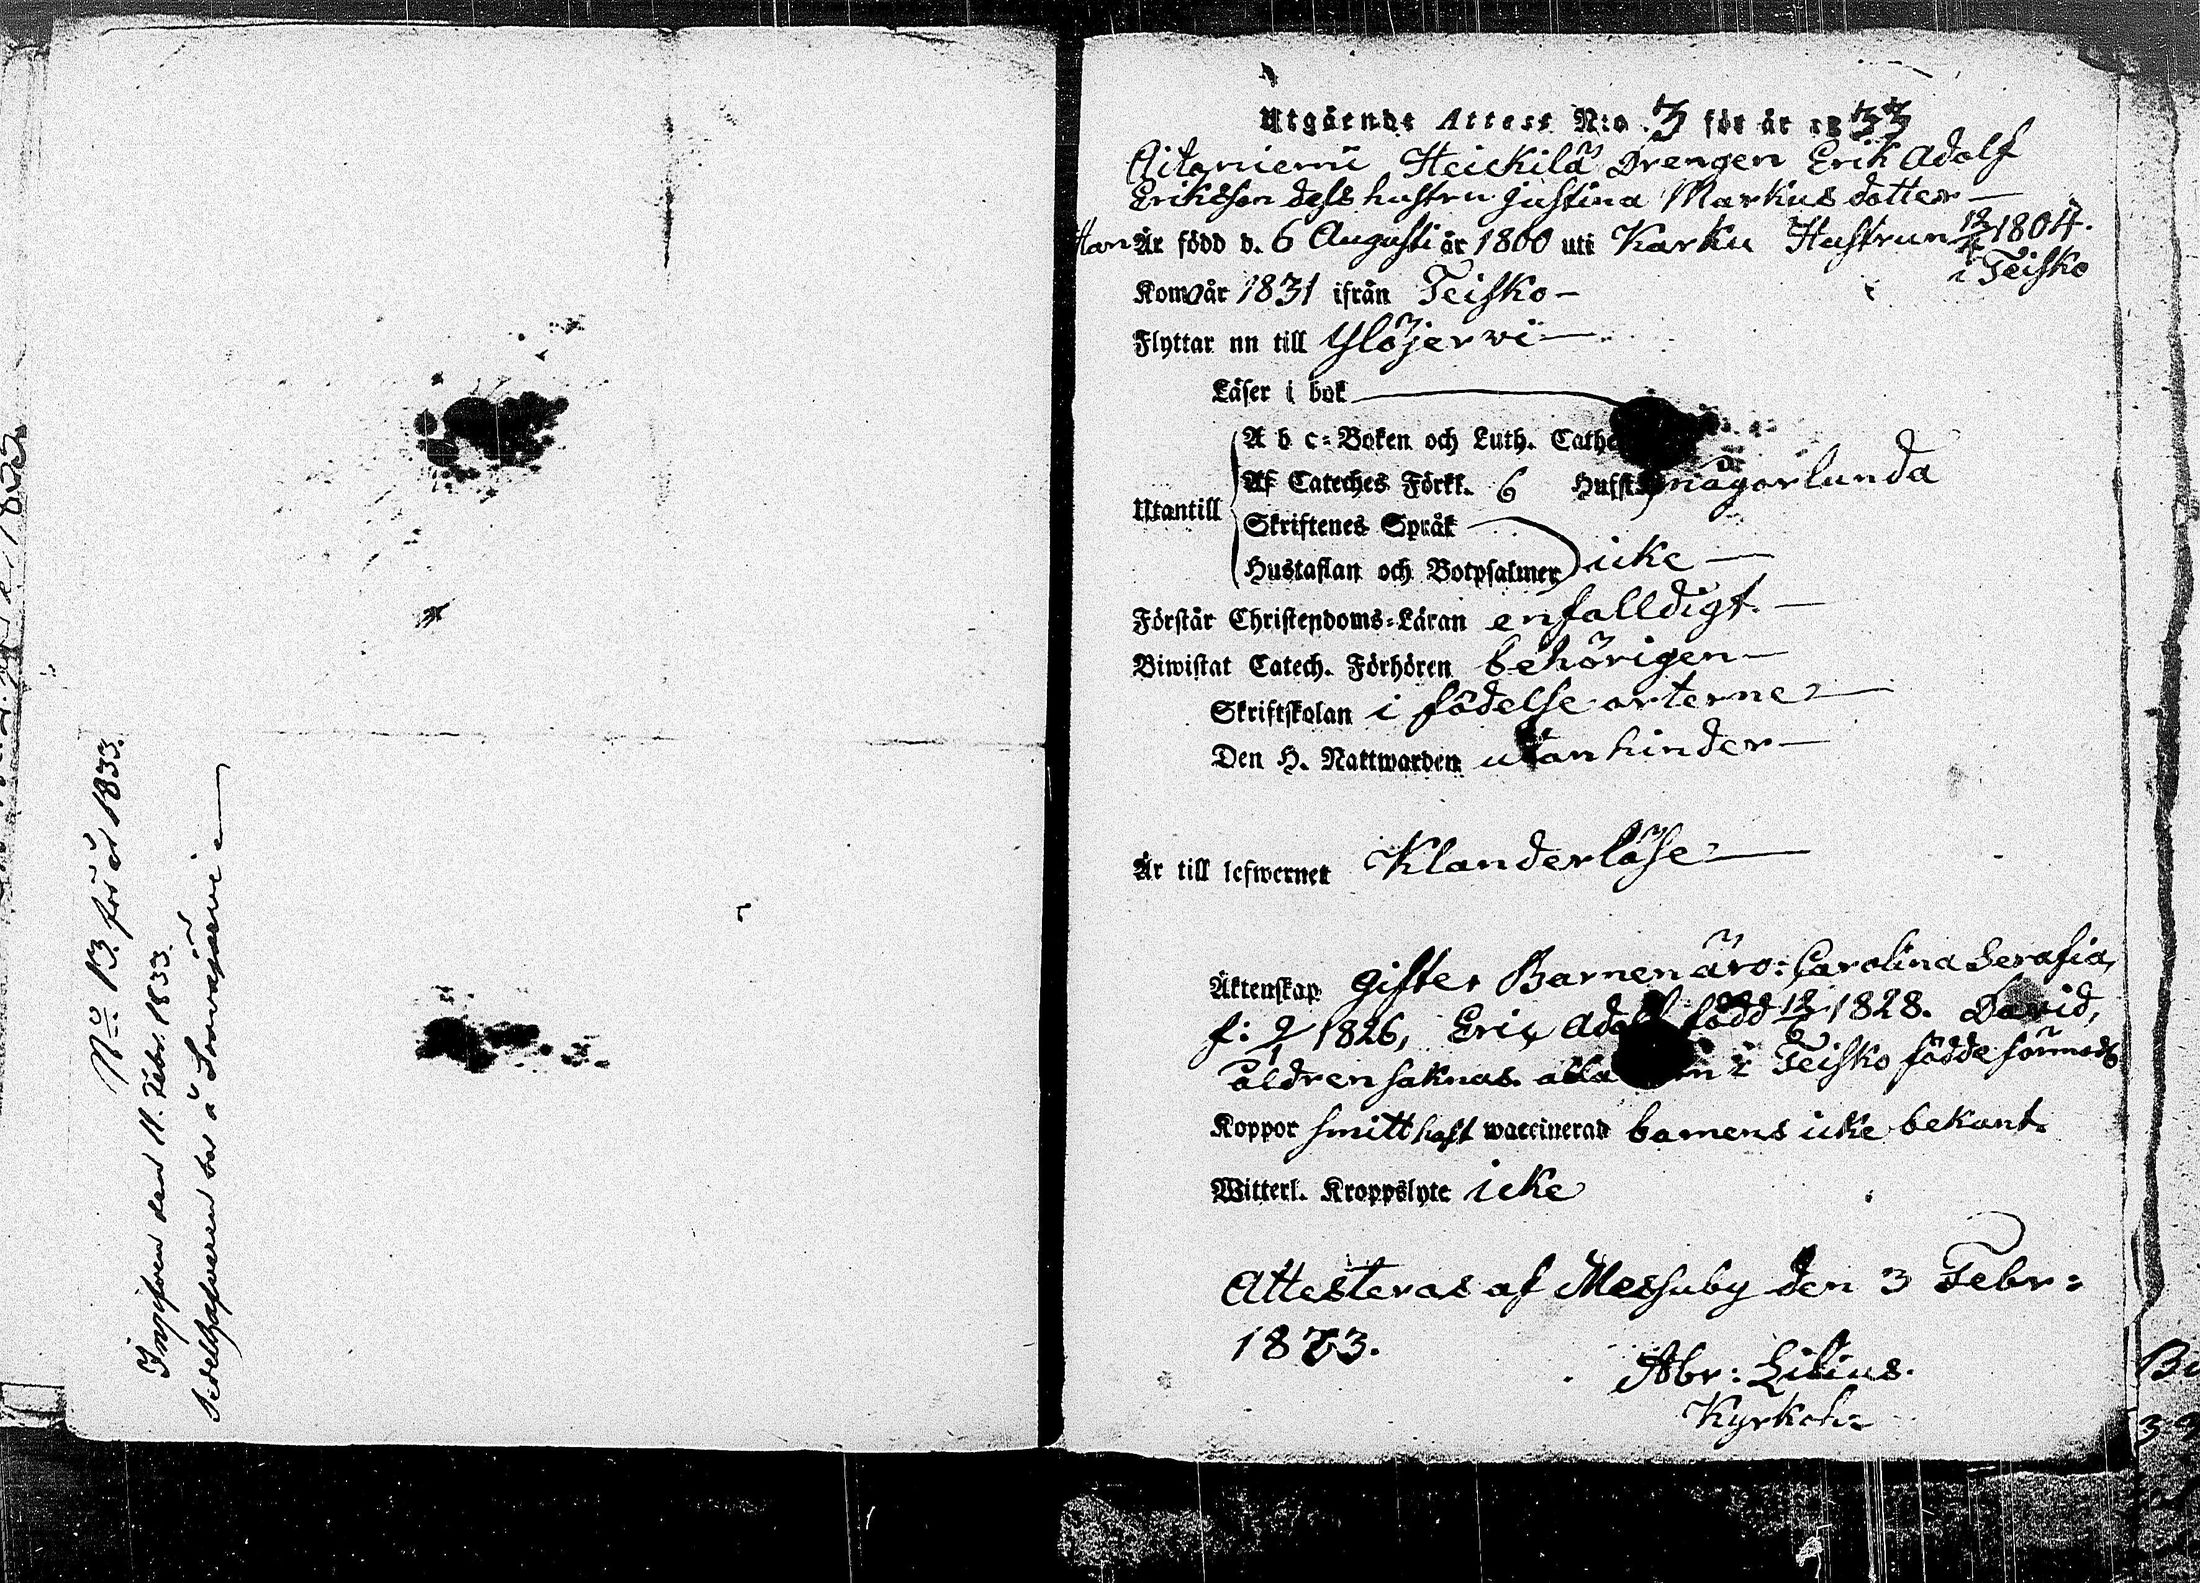 No 13 för år 1833.
Inskrifven den 11. Febr. 1833.
Sedelhafveren bor å
Utgående Attest N:o 3 för år 1833
Aitoniemi Heickilä Drengen Erik Adolf
Eriksson dess hustru Justina Markus dotter —
Han Är född d. 6 Augusti år 1800 uti Karku Hustrun 12/4 1804.
i Teisko
Kom år 1831 ifrån Teisko —
Flyttar nu till Ylöjerwi —
Läser i bok
A b c-Boken och Luth. Cath
Af Cateches Förkl. 6 Husst någorlunda
Utantill
Skriftenes Språk
Hustaflan och Botpsalmer icke —
Förstår Christendoms-Läran enfalldigt. —
Biwistat Catech. Förhören behörigen —
Skriftskolan i födelse orterne —
Den H. Nattwarden utan hinder —
Är till lefwernet Klanderlöse —
Äktenskap gifte. Barnen äro: Carolina Serafia,
f: 9/1 1826, Eric Adolf född 12/6 1828. David,
åldren saknas. alla i Teisko födde förmodl
Koppor smitthaft waccinerad barnens icke bekant.
Witterl. Kroppslyte icke
Attesteras af Messuby den 3 Febr:
1833.
Abr: Lilius.
Kyrkoh: